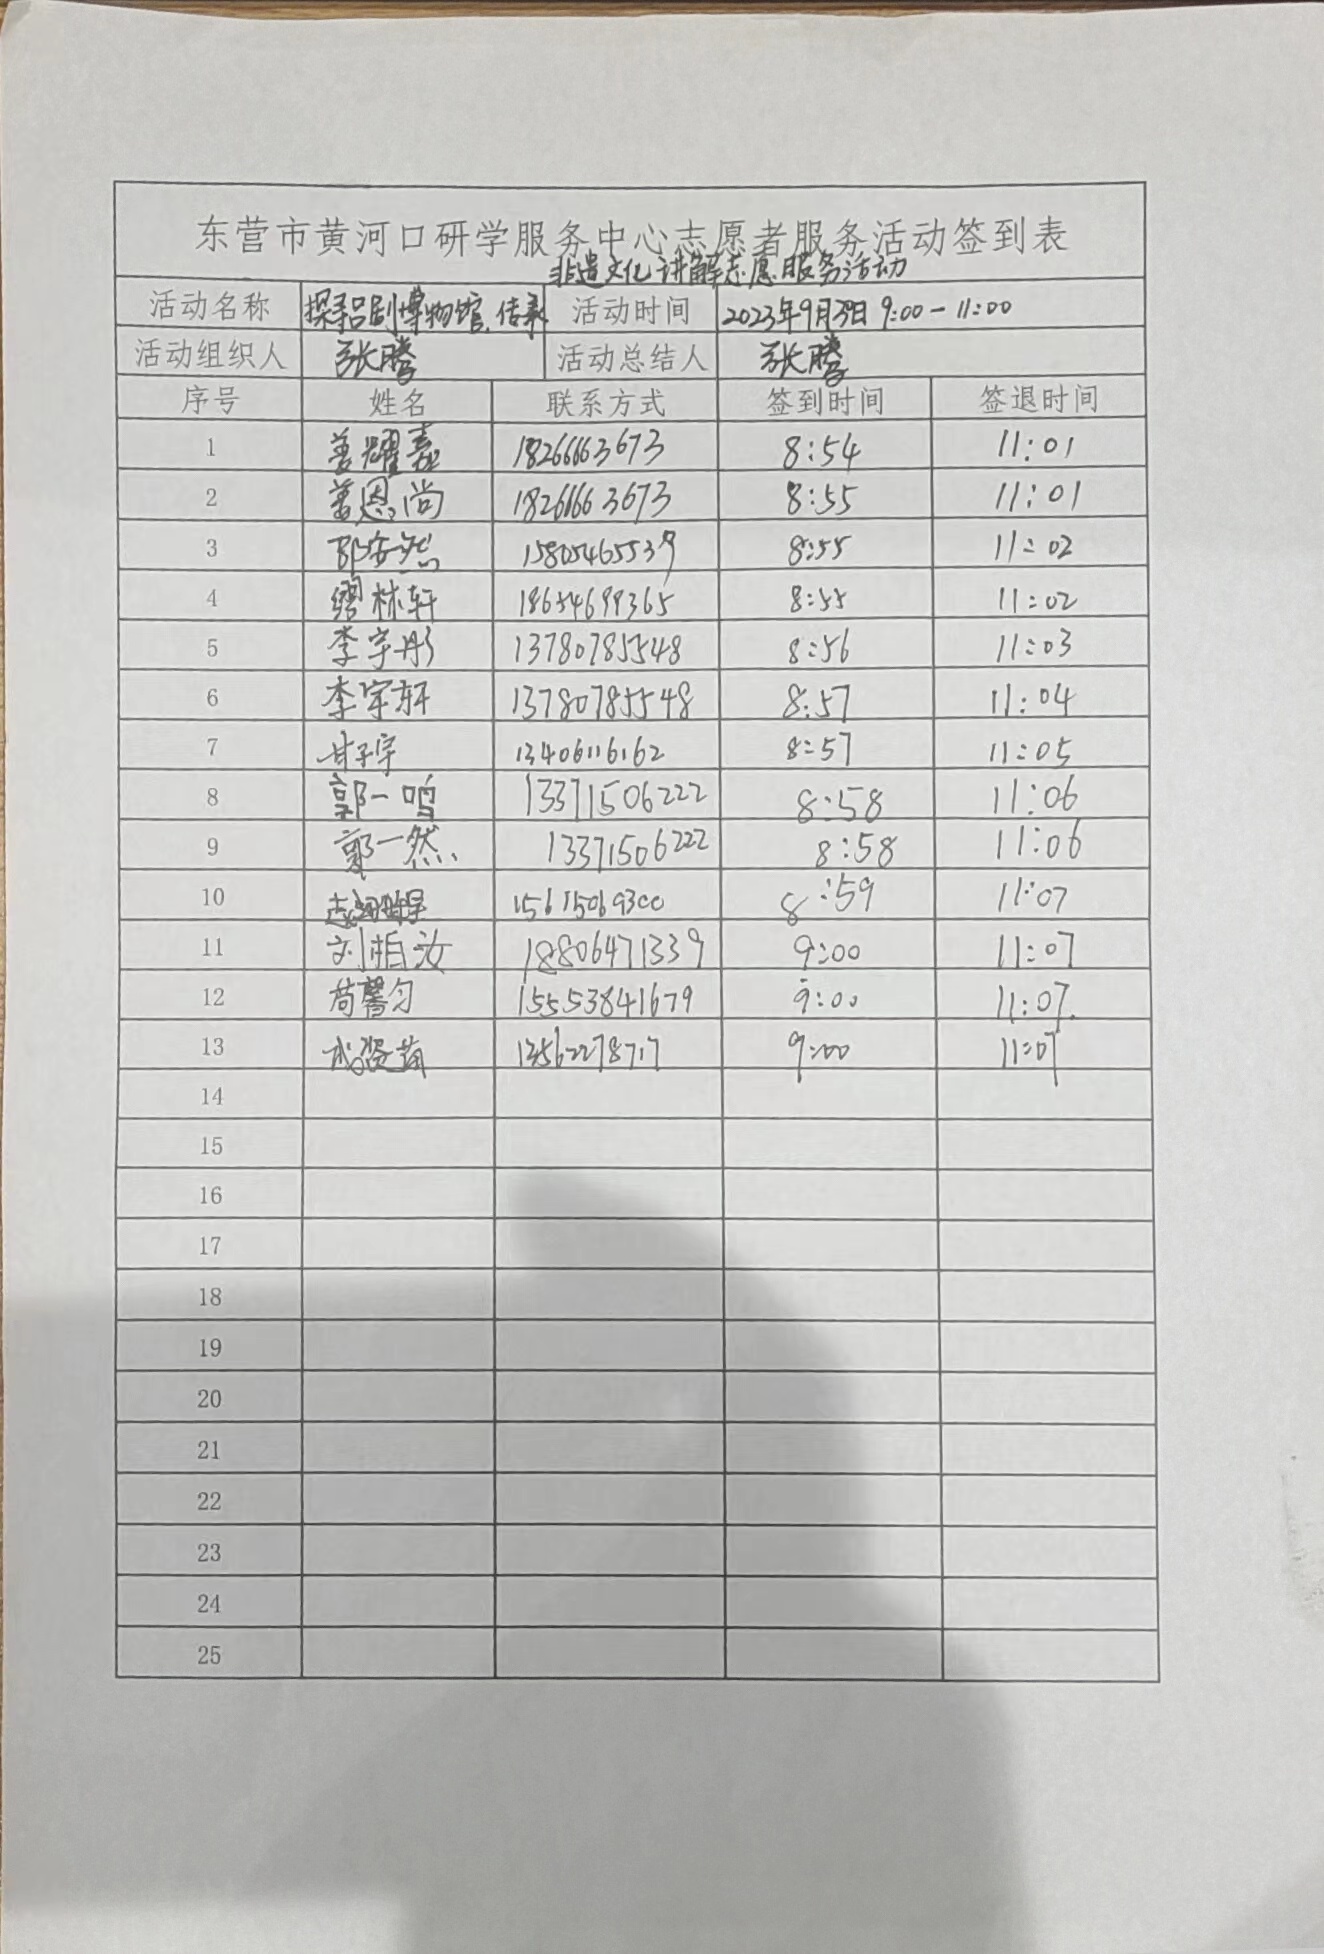 东营市黄河口研学服务中心志愿者服务活动签到表
非遗文化讲解志愿服务活动
活动名称 探寻吕剧博物馆,传承 活动时间 2023年9月 日 9:00-11:00
活动组织人 张腾 活动总结人 张腾
序号 姓名 联系方式 签到时间 签退时间
1 18266663673 8:54 11:01
2 18266663673 8:55 11:01
3 邵安然 15805465539 8:55 11:02
4 缪林轩 18654699365 8:55 11:02
5 李宇彤 13780785548 8:56 11:03
6 李宇轩 13780785548 8:57 11:04
7 甘子宇 13406116162 8:57 11:05
8 郭一鸣 13371506222 8:58 11:06
9 郭一然 13371506222 8:58 11:06
10 15615069300 8:59 11:07
11 刘柏汝 18806471339 9:00 11:07
12 苟馨匀 15553841679 9:00 11:07
13 13562278717 9:00 11:07
14
15
16
17
18
19
20
21
22
23
24
25